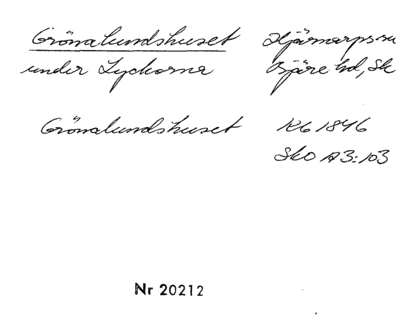 Grönalundshuset Hjärnarps sn
under Lyckorna Bjäre hd, Sk
Grönalundshuset Kb 1846
Sko A3:103
Nr 20212